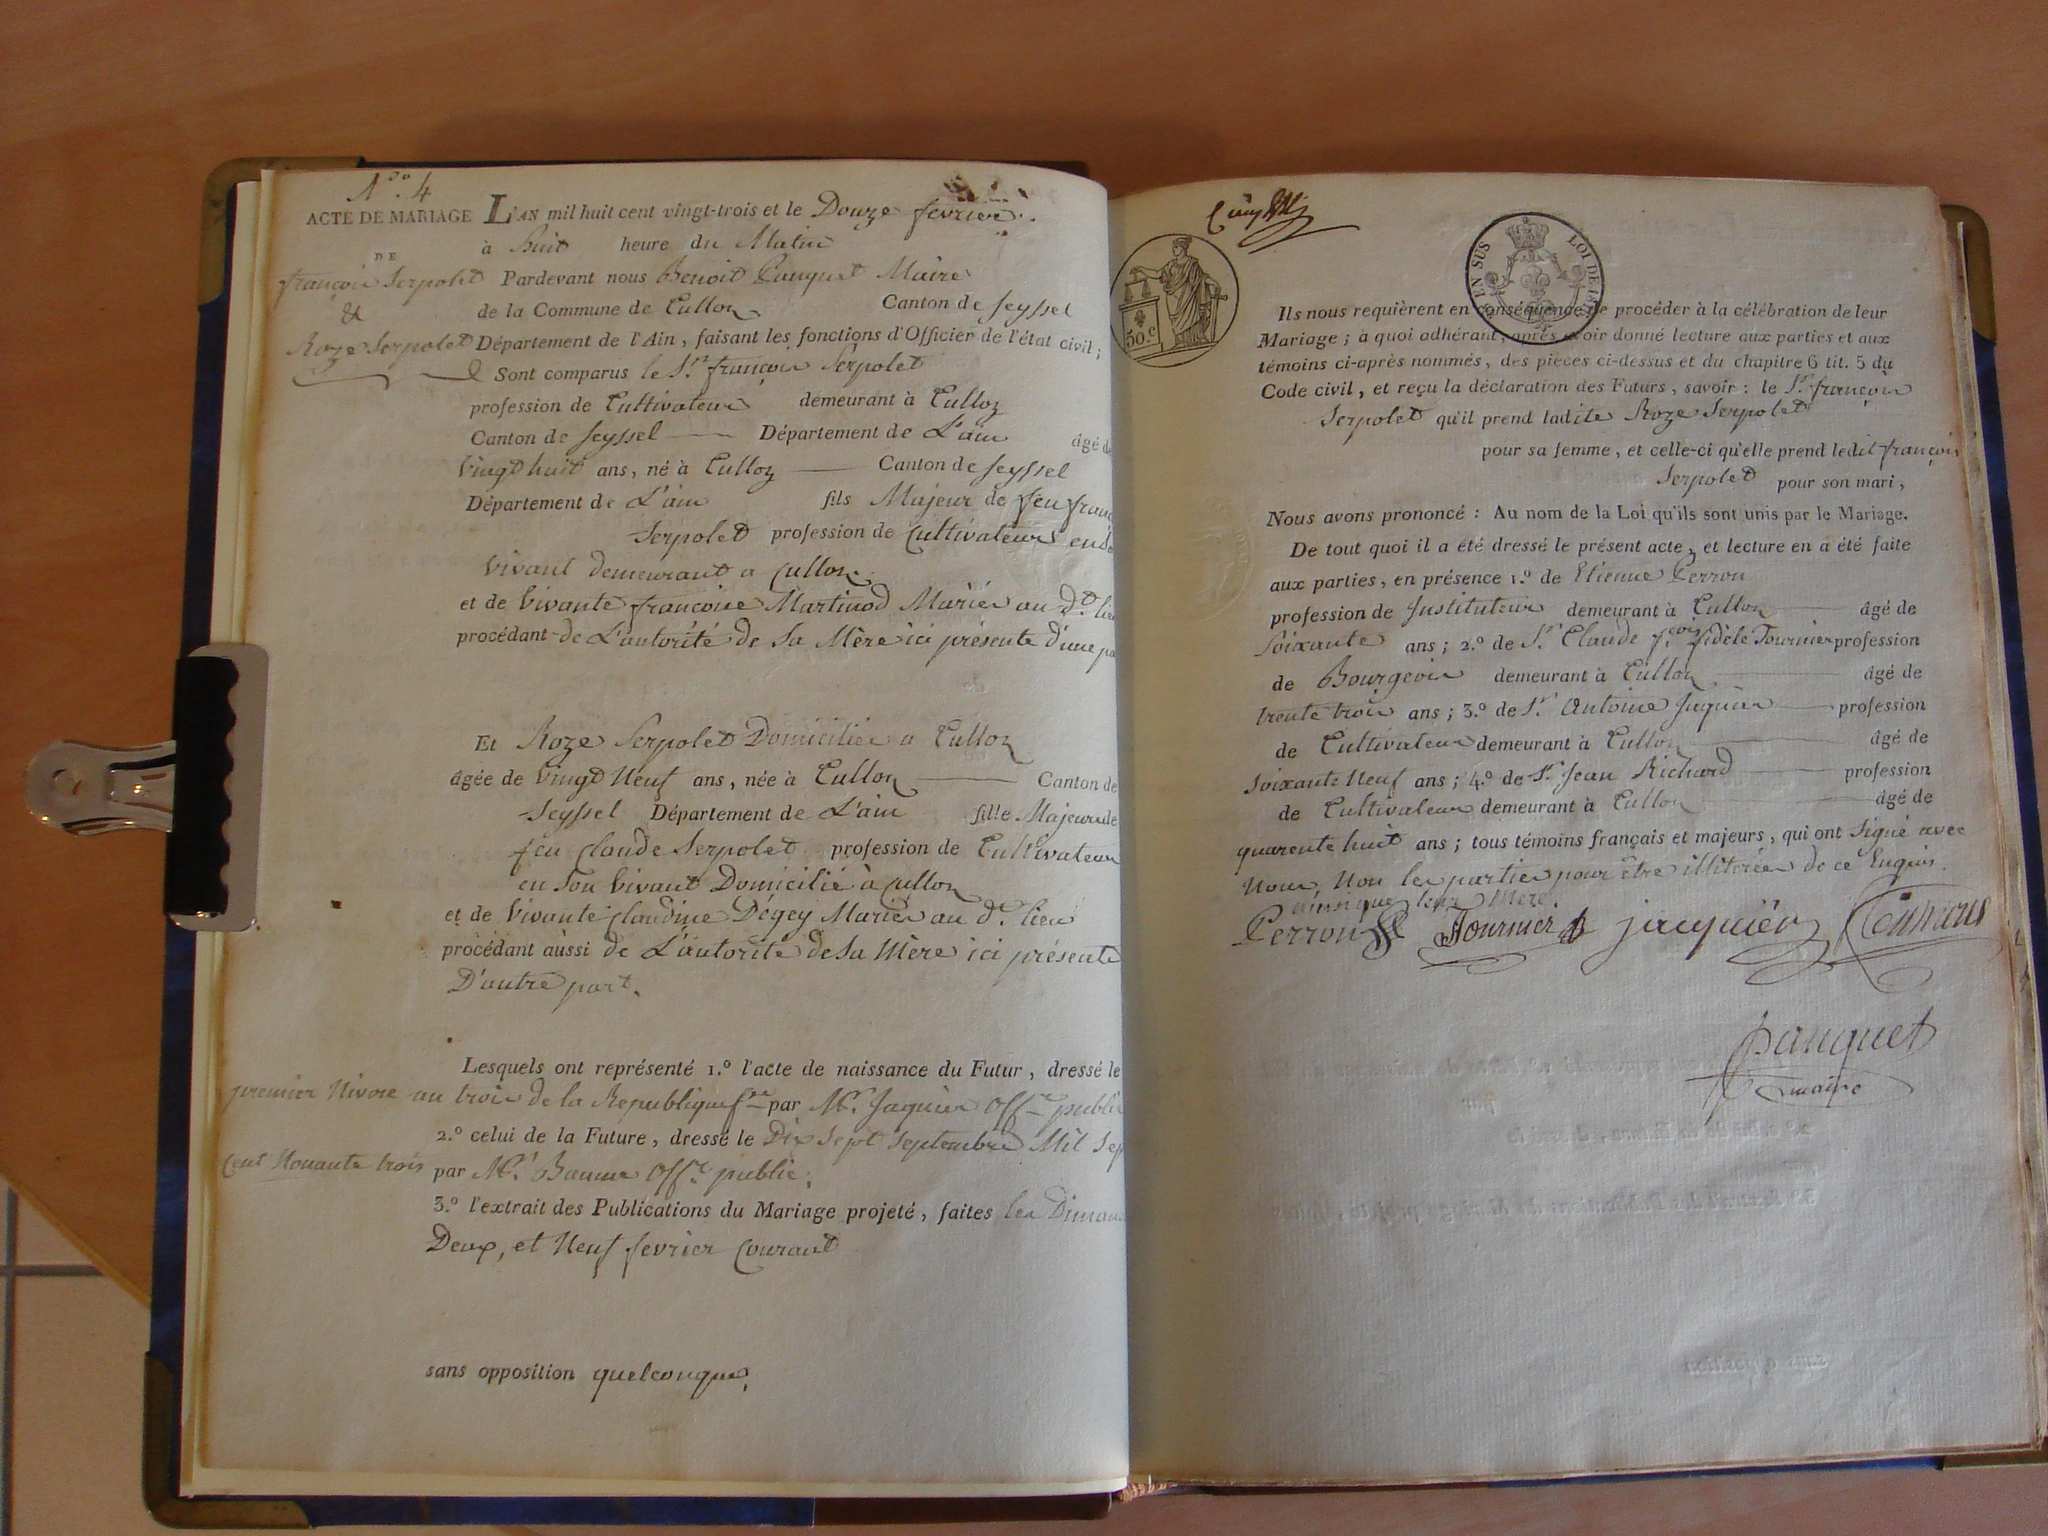 N.° 4
ACTE DE MARIAGE
DE
françois Serpolet
&
Roze Serpolet
L'AN mil huit cent vingt-trois et le Douze fevrier
à huit heure du Matin
Pardevant nous Benoit Pauquet Maire
de la Commune de Culloz Canton de Seyssel
Département de l'Ain, faisant les fonctions d'Officier de l'état civil;
Sont comparus le Sr. françois Serpolet
profession de Cultivateur demeurant à Culloz
Canton de Seyssel Département de L'ain âgé de
vingt huit ans, né à Culloz Canton de Seyssel
Département de L'ain fils Majeur de feu franç
Serpolet profession de Cultivateur en so
vivant demeurant a Culloz
et de vivante françoise Martinod Mariés au dt. lieu
procédant de L'autorité de Sa Mère ici présente d'une pa
Et Roze Serpolet Domiciliée a Culloz
âgée de vingt Neuf ans, née à Culloz Canton de
Seyssel Département de L'ain fille Majeure de
feu Claude Serpolet profession de Cultivateur
en son vivant Domicilié à Culloz
et de vivante Claudine Dégey Mariés au dt. lieu
procédant aussi de L'autorité de Sa Mère ici présente
D'autre part.
Lesquels ont représenté 1.° l'acte de naissance du Futur, dressé le
premier Nivose an trois de la Republique fse par Mr. Jaquier Offr. public
2.° celui de la Future, dressé le Dix Sept Septembre Mil Sep
Cent Nonante trois par Mr. Baume Offr. public;
3.° l'extrait des Publications du Mariage projeté, faites les Diman
Deux, et Neuf fevrier Courant
sans opposition quelconque.
50.c
EN SUS LOI DE
Ils nous requièrent en conséquence de procéder à la célébration de leur
Mariage; à quoi adhérant, après avoir donné lecture aux parties et aux
témoins ci-après nommés, des pièces ci-dessus et du chapitre 6 tit. 5 du
Code civil, et reçu la déclaration des Futurs, savoir: le Sr. françois
Serpolet qu'il prend ladite Roze Serpolet
pour sa femme, et celle-ci qu'elle prend ledit françois
Serpolet pour son mari,
Nous avons prononcé: Au nom de la Loi qu'ils sont unis par le Mariage.
De tout quoi il a été dressé le présent acte, et lecture en a été faite
aux parties, en présence 1.° de Etienne Perron
profession de Instituteur demeurant à Culloz âgé de
Soixante ans; 2.° de Sr. Claude fcois fidèle Fournier profession
de Bourgeois demeurant à Culloz âgé de
trente trois ans; 3.° de Sr. Antoine Jaquier profession
de Cultivateur demeurant à Culloz âgé de
Soixante Neuf ans; 4.° de Sr. Jean Richard profession
de Cultivateur demeurant à Culloz âgé de
quarente huit ans; tous témoins français et majeurs, qui ont Signé avec
Nous, Non les parties pour être illiterées de ce Enquis
ainsi que leur Mère.
Perron Fournier jacquier
pauquet
maire